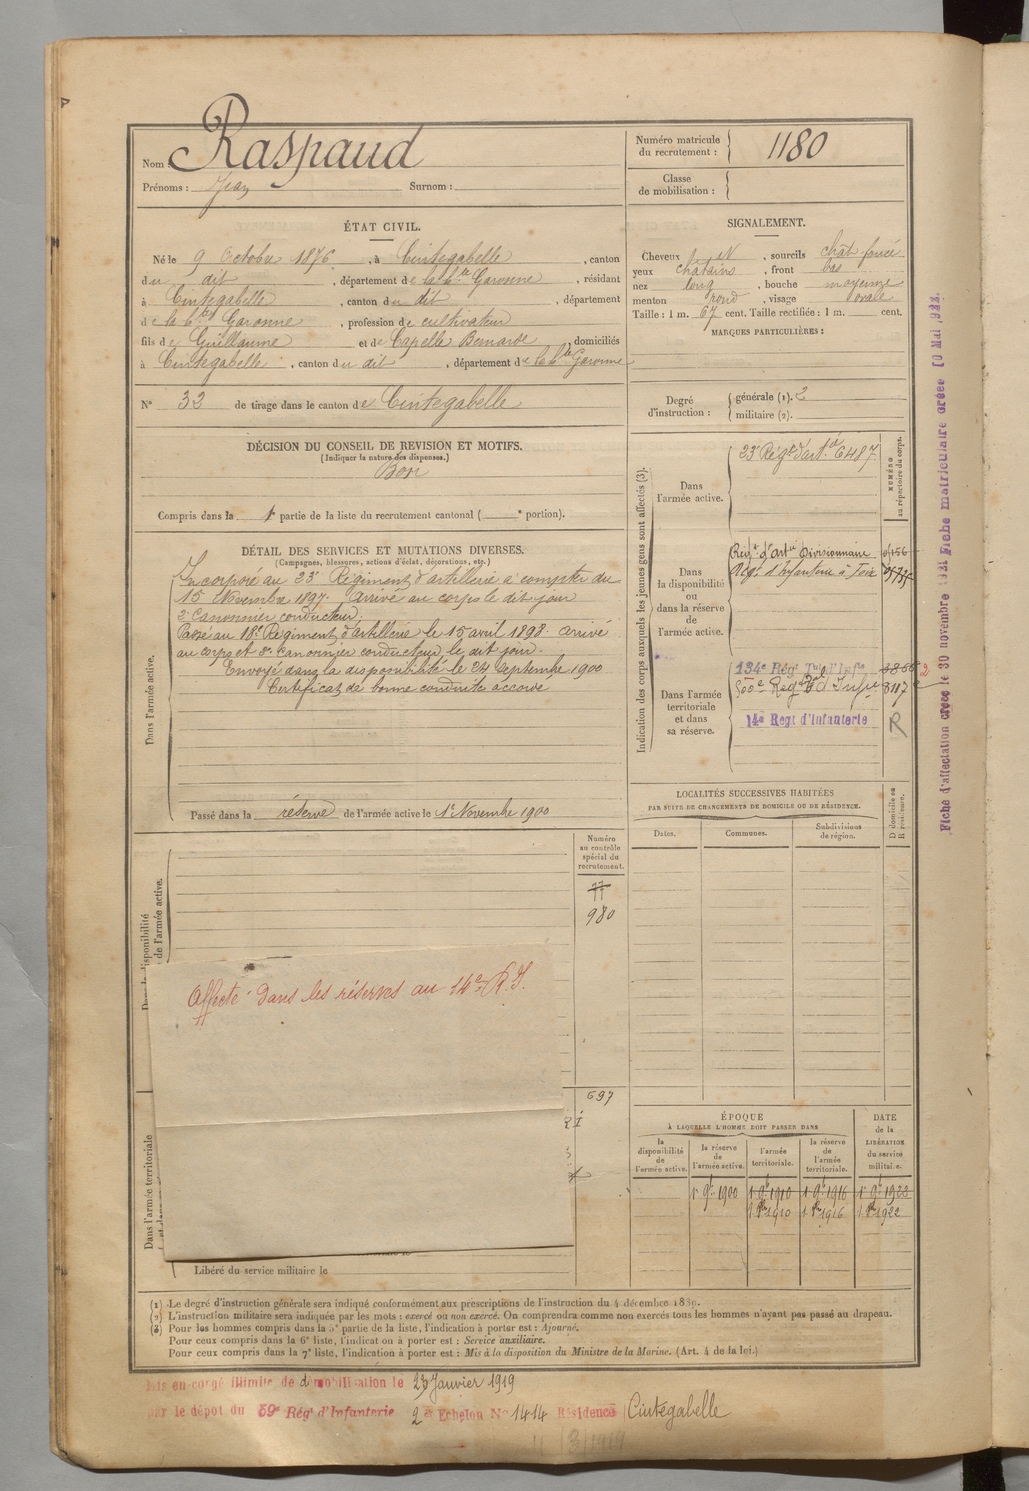 Nom Raspaud
Prénoms : Jean Surnom :
Numéro matricule du recrutement : 1180
Classe de mobilisation :
ÉTAT CIVIL.
Né le 9 Octobre 1876, à Cintegabelle, canton
du dit, département de la hte Garonne, résidant
à Cintegabelle, canton du dit, département
de la hte Garonne, profession de cultivateur
fils de Guillaume et de Capelle Bernarde, domiciliés
à Cintegabelle, canton du dit, département de la hte Garonne
N° 32 de tirage dans le canton de Cintegabelle
DÉCISION DU CONSEIL DE REVISION ET MOTIFS.
(Indiquer la nature des dispenses.)
Bon
Compris dans la 1e partie de la liste du recrutement cantonal ( e portion).
DÉTAIL DES SERVICES ET MUTATIONS DIVERSES.
(Campagnes, blessures, actions d'éclat, décorations, etc.)
Dans l'armée active.
Incorporé au 23e Régiment d'artillerie à compter du
15 Novembre 1897. Arrivé au corps le dit jour
2e Canonnier conducteur.
Passé au 18e Régiment d'artillerie le 15 avril 1898. arrivé
au corps et 2e canonnier conducteur le dit jour.
Envoyé dans la disponibilité le 24 Septembre 1900
Certificat de bonne conduite accordé
Passé dans la réserve de l'armée active le 1er Novembre 1900
Numéro
au contrôle
spécial du
recrutement.
77
980
697
Affecté dans les réserves au 14e R.I.
Dans l'armée territoriale
Libéré du service militaire le
SIGNALEMENT.
Cheveux N, sourcils chât foncé
yeux chatains, front bas
nez long, bouche moyenne
menton rond, visage ovale
Taille : 1 m. 67 cent. Taille rectifiée : 1 m. cent.
MARQUES PARTICULIÈRES :
Degré d'instruction : générale (1). 2
militaire (2).
Indication des corps auxquels les jeunes gens sont affectés (3).
NUMÉRO
au répertoire du corps.
Dans
l'armée active.
23e Régt d'artie 6487
Dans
la disponibilité
ou
dans la réserve
de
l'armée active.
Régt d'artie Divisionnaire
Régt d'Infanterie à Foix
Dans l'armée
territoriale
et dans
sa réserve.
134e Régt Tal d'Infie
500e Régt Tal d'Infie 3117
14e Regt d'Infanterie R
LOCALITÉS SUCCESSIVES HABITÉES
PAR SUITE DE CHANGEMENTS DE DOMICILE OU DE RÉSIDENCE.
Dates. Communes. Subdivisions de région. D domicile ou R résidence.
ÉPOQUE
À LAQUELLE L'HOMME DOIT PASSER DANS
la disponibilité de l'armée active. la réserve de l'armée active. l'armée territoriale. la réserve de l'armée territoriale.
DATE de la LIBÉRATION du service militaire.
1r 9b 1900 1r 9b 1910 1r 9b 1916 1r 9b 1922
1910 1916 1922
(1) Le degré d'instruction générale sera indiqué conformément aux prescriptions de l'instruction du 4 décembre 1889.
(2) L'instruction militaire sera indiquée par les mots : exercé ou non exercé. On comprendra comme non exercés tous les hommes n'ayant pas passé au drapeau.
(3) Pour les hommes compris dans la 5e partie de la liste, l'indication à porter est : Ajourné.
Pour ceux compris dans la 6e liste, l'indication à porter est : Service auxiliaire.
Pour ceux compris dans la 7e liste, l'indication à porter est : Mis à la disposition du Ministre de la Marine. (Art. 4 de la loi.)
Mis en congé illimité de démobilisation le 23 Janvier 1919
par le dépôt du 59e Rég' d'Infanterie 2e Echelon N° 1414 Résidence Cintegabelle
Fiche d'affectation créée le 30 novembre 1931 Fiche matriculaire créée